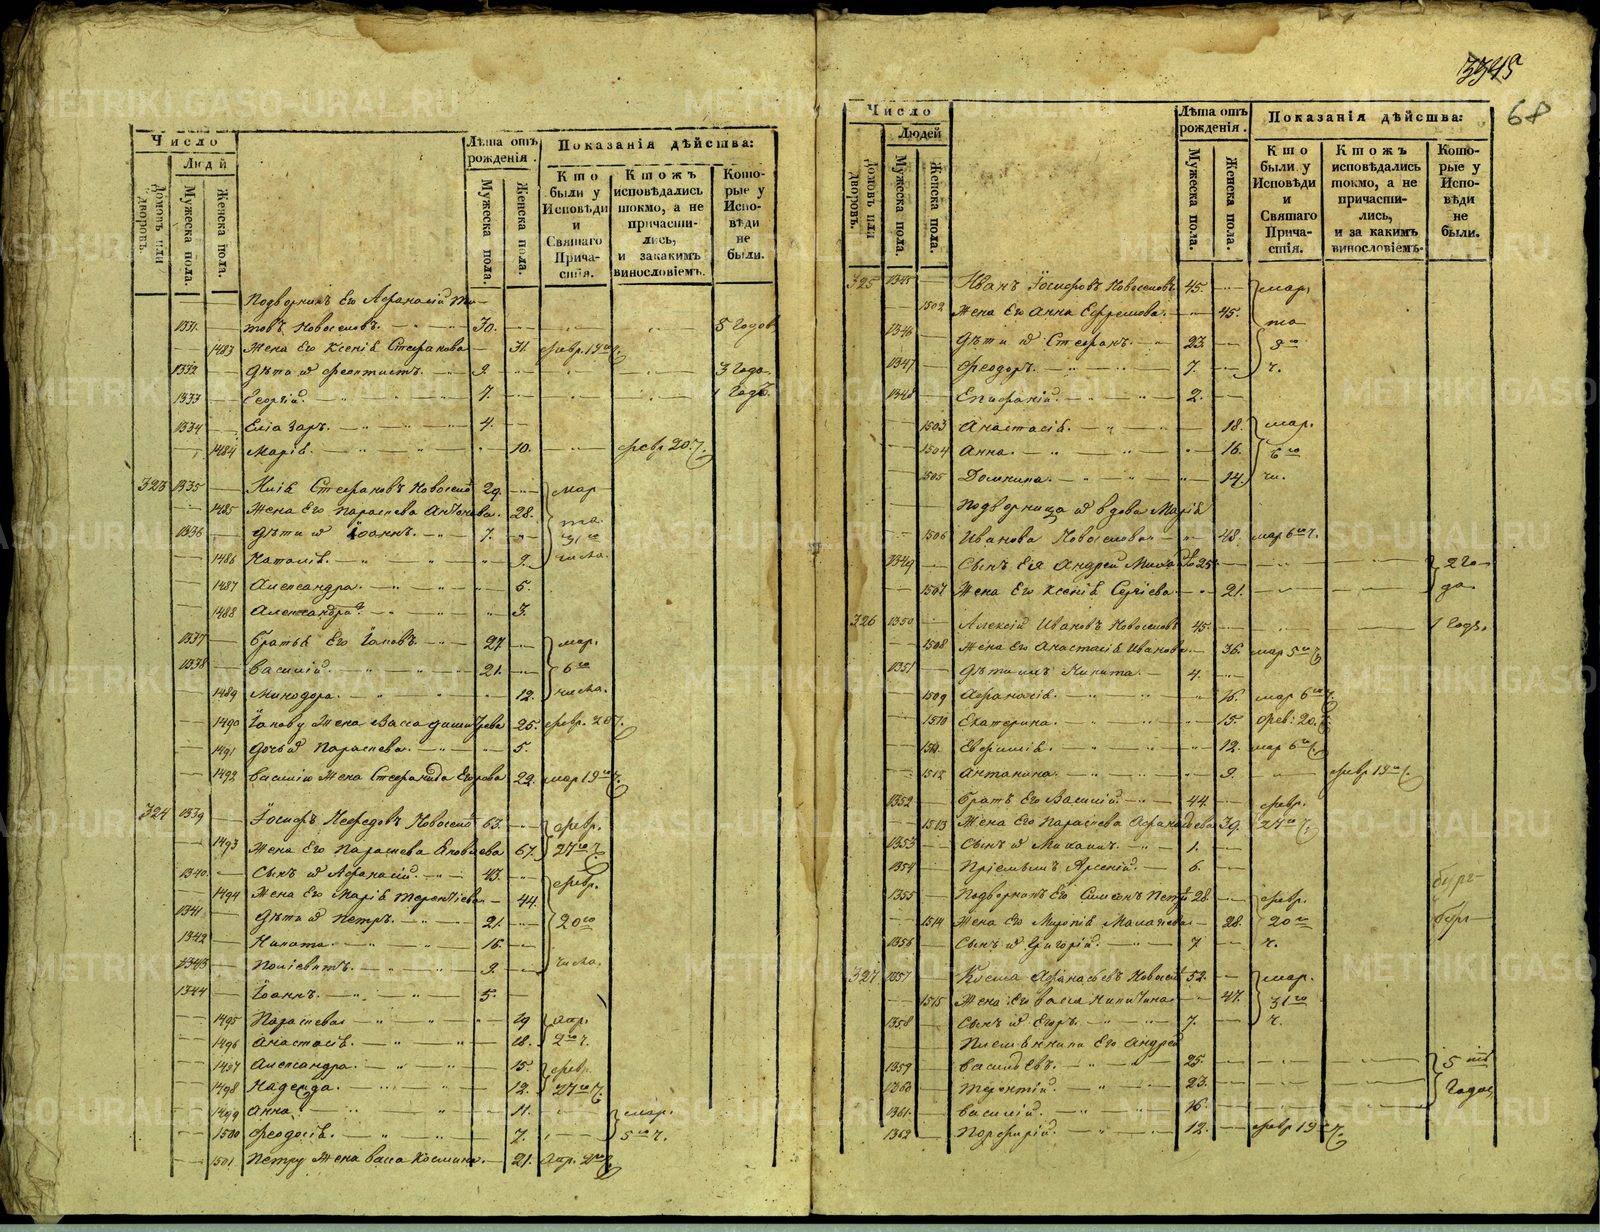 3345
68
Число
Людй
Домовъ или дворовъ.
Мужеска пола.
Женска пола.
Лѣта отъ рожденія.
Мужеска пола.
Женска пола.
Показанія дѣйства:
Кто были у Исповѣди и Святаго Причастія.
Ктожъ исповѣдались токмо, а не причастились, и закакимъ винословіемъ.
Которые у Исповѣди не были.
Подворникъ Его Афанасій Ти-
1331. товъ Новоселовъ. 30. 5 годов
1483 Жена Его Ксенія Стефанова 31. февр. 19го ч.
1332 Дѣти и Феоктистъ. 9. 3 года
1333 Георгій. 7. 1 годъ.
1334 Елиазаръ. 4.
1484 Марія. 10. февр 20. ч.
323 1335 Стефановъ Новоселов 29. мар
1485 Жена Его Параскева Антонова. 28. та
1336 Дѣти и Іоаннъ. 7. 31го
1486 Наталія. 9. числа.
1487 Александра. 5.
1488 Александра. 3.
1337 Братья Его Іаковъ. 27 мар.
1338 Василій. 21. 6го
1489 Минодора. 12. числа.
1490 Іакову Жена Васса 25. февр. 20 ч.
1491 Дочь и Параскева. 5.
1492 Василію Жена Стефанида Егорова 22. мар 19го ч.
324 1339 Іосифъ Нефедовъ Новоселов 63. февр.
1493 Жена Его Параскева Яковлева 67. 27го ч.
1340 Сынъ и Афанасій. 43. февр.
1494 Жена Его Марія Терентіева 44.
1341 Дѣти и Петръ. 21. 20го
1342 Никита. 16.
1343 Поліевктъ. 9. числа.
1344 Іоаннъ. 5.
1495 Параскева 19 Апр.
1496 Анастасія. 18. 2го ч.
1497 Александра. 15. февр.
1498 Надежда. 12. 27го ч.
1499 Анна. 11. мар.
1500 Феодосія. 7. 5го ч.
1501 Петру Жена Васса Космина. 21. Апр. 2го ч.
Число
Людей
Домовъ или дворовъ.
Мужеска пола.
Женска пола.
Лѣта отъ рожденія.
Мужеска пола.
Женска пола.
Показанія дѣйства:
Кто были у Исповѣди и Святаго Причастія.
Ктожъ исповѣдались токмо, а не причастились, и за какимъ винословіемъ.
Которые у Исповѣди не были.
325 1345 Иванъ Іосифовъ Новоселовъ 45. мар
1502 Жена Его Анна Ефремова. 45. та
1346 Дѣти и Стефанъ. 23. 9го
1347 Феодоръ. 7. ч.
1348 Епифаній. 2.
1503 Анастасія. 18. мар.
1504 Анна. 16. 6го
1505 Домнина. 14. чи.
Подворница и вдова Марія
1506 Иванова Новоселова 48. мар 6го ч.
1349 Сынъ Ея Андрей 25. 2 го-
1507 Жена Его Ксенія Сергіева 21. да
326 1350 Алексій Ивановъ Новоселовъ 45. 1 годъ.
1508 Жена Его Анастасія Иванова 36. мар 5го ч.
1351 Дѣти ихъ Никита. 4.
1509 Афанасія. 16. мар 6го ч.
1510 Екатерина. 15. февр: 20. ч.
1511 Евфимія. 12. мар 6го ч.
1512 Антонина. 9. февр 19го ч.
1352 Братъ Его Василій. 44. февр.
1513 Жена Его Параскева Афанасьева 39. 27го ч.
1353 Сынъ и Михаилъ. 1.
1354 Пріемышъ Арсеній. 6.
1355 Подворникъ Его Симеонъ Петр 28. февр.
1514 Жена Его Миропія Малахіева 28. 20го
1356 Сынъ и Григорій. 7. ч.
327 1357 Косма Афанасьевъ Новосел 52. мар.
1515 Жена Его Васса Никитина 47. 31го
1358 Сынъ и Егоръ. 7. ч.
Племянники Его Андрей
1359 Васильевъ. 25. 5 ть
1360 Терентій. 23. годов
1361 Василій. 16.
1362 Порфирій. 12. февр 19 ч.